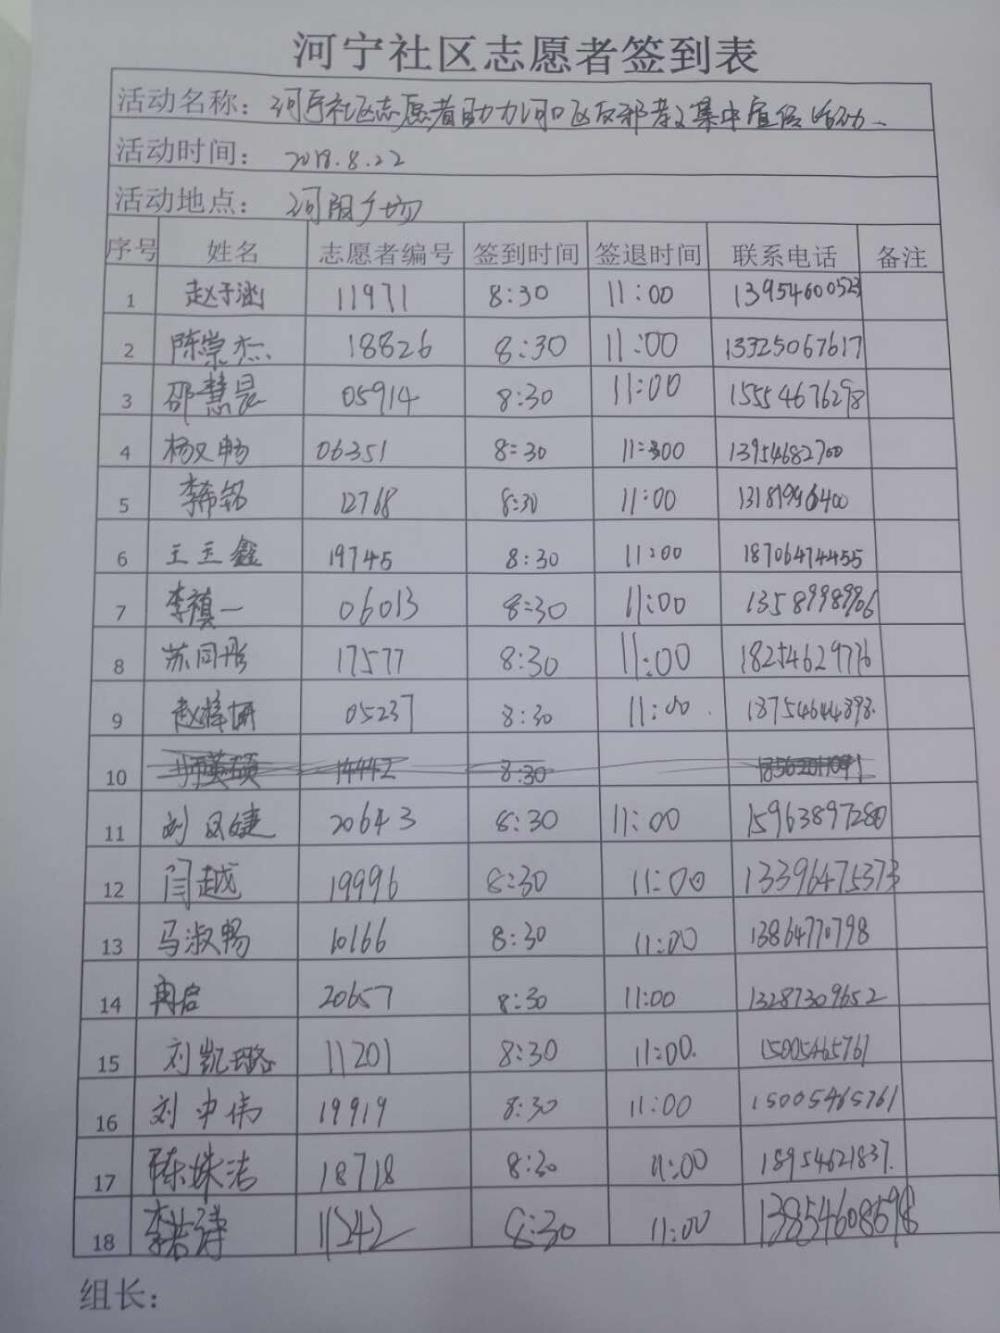 河宁社区志愿者签到表
活动名称: 河宁社区志愿者助力河口区反邪教集中宣传活动
活动时间: 2018.8.22
活动地点: 河阳广场
序号 姓名 志愿者编号 签到时间 签退时间 联系电话 备注
1 赵子涵 11971 8:30 11:00 13954600523
2 陈崇杰 18826 8:30 11:00 13325067617
3 邵慧昃 05914 8:30 11:00 15554676298
4 杨义畅 06351 8:30 11:00 13954682700
5 李希铭 12768 8:30 11:00 13181996400
6 王玉鑫 19745 8:30 11:00 18706474455
7 李禛一 06013 8:30 11:00 13589989906
8 苏同彤 17577 8:30 11:00 18254629776
9 赵梓妍 05237 8:30 11:00 18754644393
10 14442 8:30
11 刘凤婕 20643 8:30 11:00 15963897280
12 闫越 19996 8:30 11:00 13396475373
13 马淑畅 10166 8:30 11:00 13864770798
14 冉启 20657 8:30 11:00 13287309652
15 刘凯璐 11201 8:30 11:00 15005465761
16 刘中伟 19919 8:30 11:00 15005465761
17 陈姝洁 18718 8:30 11:00 18954621837
18 李若诗 11242 8:30 11:00 13854608598
组长: